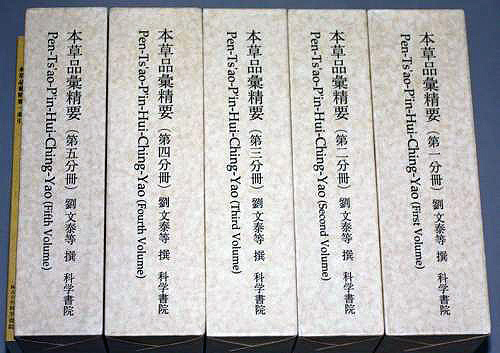 本草品彙精要（第一分冊）劉文泰等 撰 科学書院
Pen-Ts'ao-P'in-Hui-Ching-Yao (First Volume)
本草品彙精要（第二分冊）劉文泰等 撰 科学書院
Pen-Ts'ao-P'in-Hui-Ching-Yao (Second Volume)
本草品彙精要（第三分冊）劉文泰等 撰 科学書院
Pen-Ts'ao-P'in-Hui-Ching-Yao (Third Volume)
本草品彙精要（第四分冊）劉文泰等 撰 科学書院
Pen-Ts'ao-P'in-Hui-Ching-Yao (Fourth Volume)
本草品彙精要（第五分冊）劉文泰等 撰 科学書院
Pen-Ts'ao-P'in-Hui-Ching-Yao (Fifth Volume)